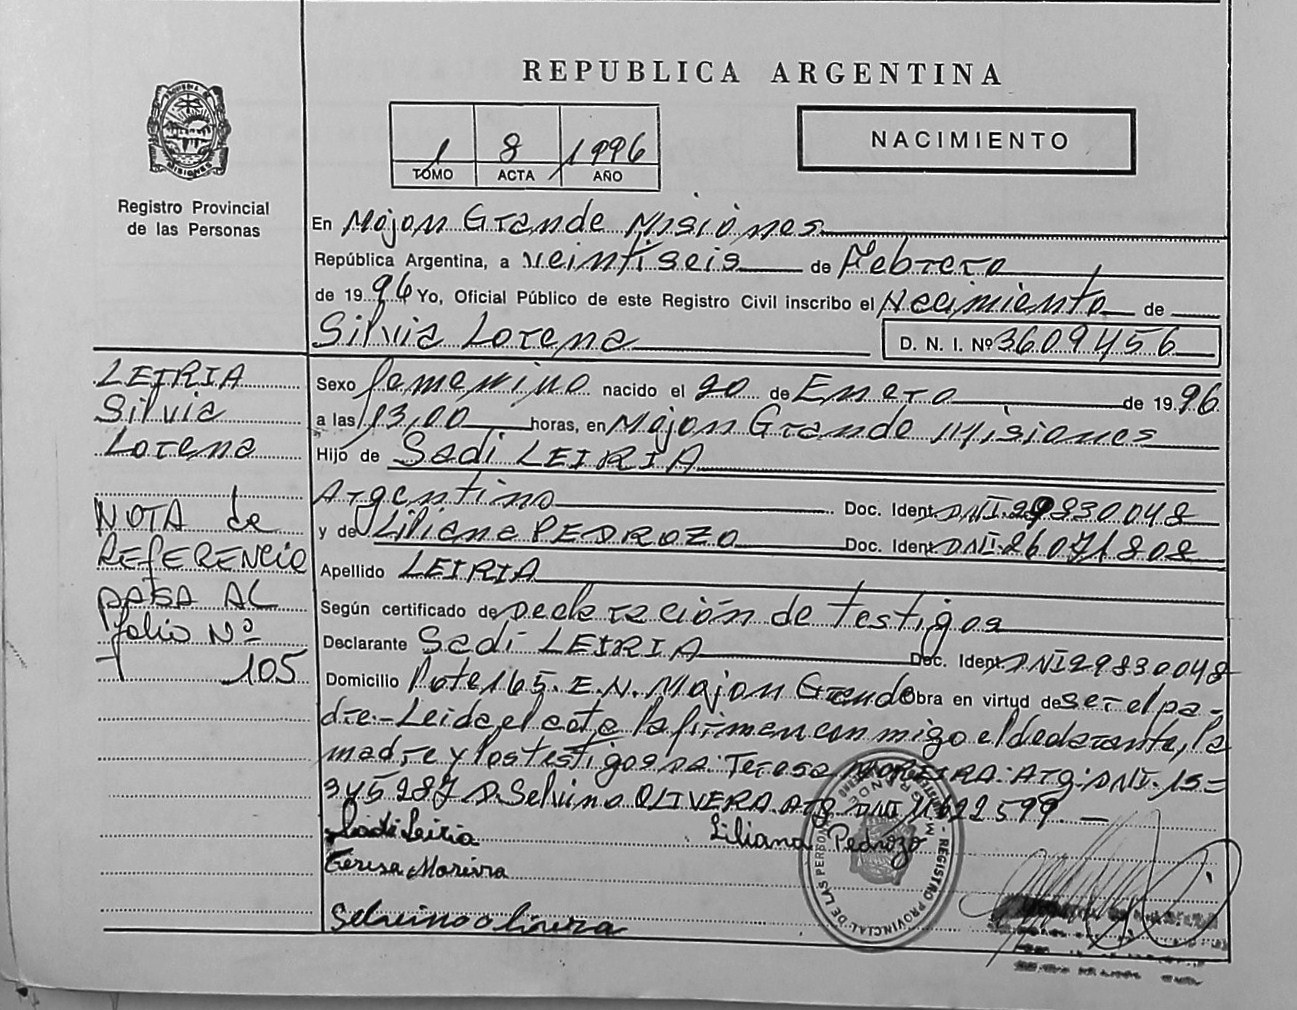 REPUBLICA ARGENTINA
1 8 1996
TOMO ACTA AÑO
NACIMIENTO
MISIONES
Registro Provincial
de las Personas
En Mojon Grande Misiones
República Argentina, a veintiseis de Febrero
de 1996 Yo, Oficial Público de este Registro Civil inscribo el Nacimiento de
Silvia Lorena
D. N. I. Nº 3609456
LEIRIA
Silvia
Lorena
NOTA de
REFERENCIA
PASA AL
folio Nº
105
Sexo femenino nacido el 20 de Enero de 1996
a las 13,00 horas, en Mojon Grande Misiones
Hijo de Sadi LEIRIA
Argentino Doc. Ident. DNI.29830048
y de Liliana PEDROZO Doc. Ident. DNI.26071808
Apellido LEIRIA
Según certificado de Declaración de testigos
Declarante Sadi LEIRIA Doc. Ident. DNI29830048
Domicilio Lote 165. E.N. Mojon Grande Obra en virtud de ser el pa-
dre.- Leida el acta la firman con migo el declarante, la
madre y los testigos Da. Teresa MOREIRA. ARG. DNI. 13-
345287 D. Selvino OLIVERA ARG DNI 11622599 —
Sadi Leiria Liliana Pedrozo
Teresa Moreira
Selvino olivera
REGISTRO PROVINCIAL DE LAS PERSONAS